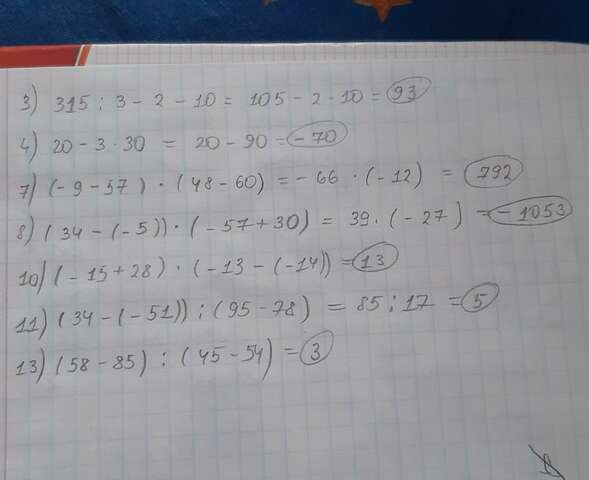 3) 315 : 3 - 2 - 10 = 105 - 2 · 10 = 93
4) 20 - 3 · 30 = 20 - 90 = - 70
7) (- 9 - 57 ) · (48 - 60) = - 66 · (- 12) = 792
8) ( 34 - (- 5)) · (- 57 + 30) = 39 · (- 27 ) = - 1053
10) (- 15 + 28) · (- 13 - (- 14)) = 13
11) (34 - (- 51)) : (95 - 78) = 85 : 17 = 5
13) (58 - 85) : (45 - 54) = 3